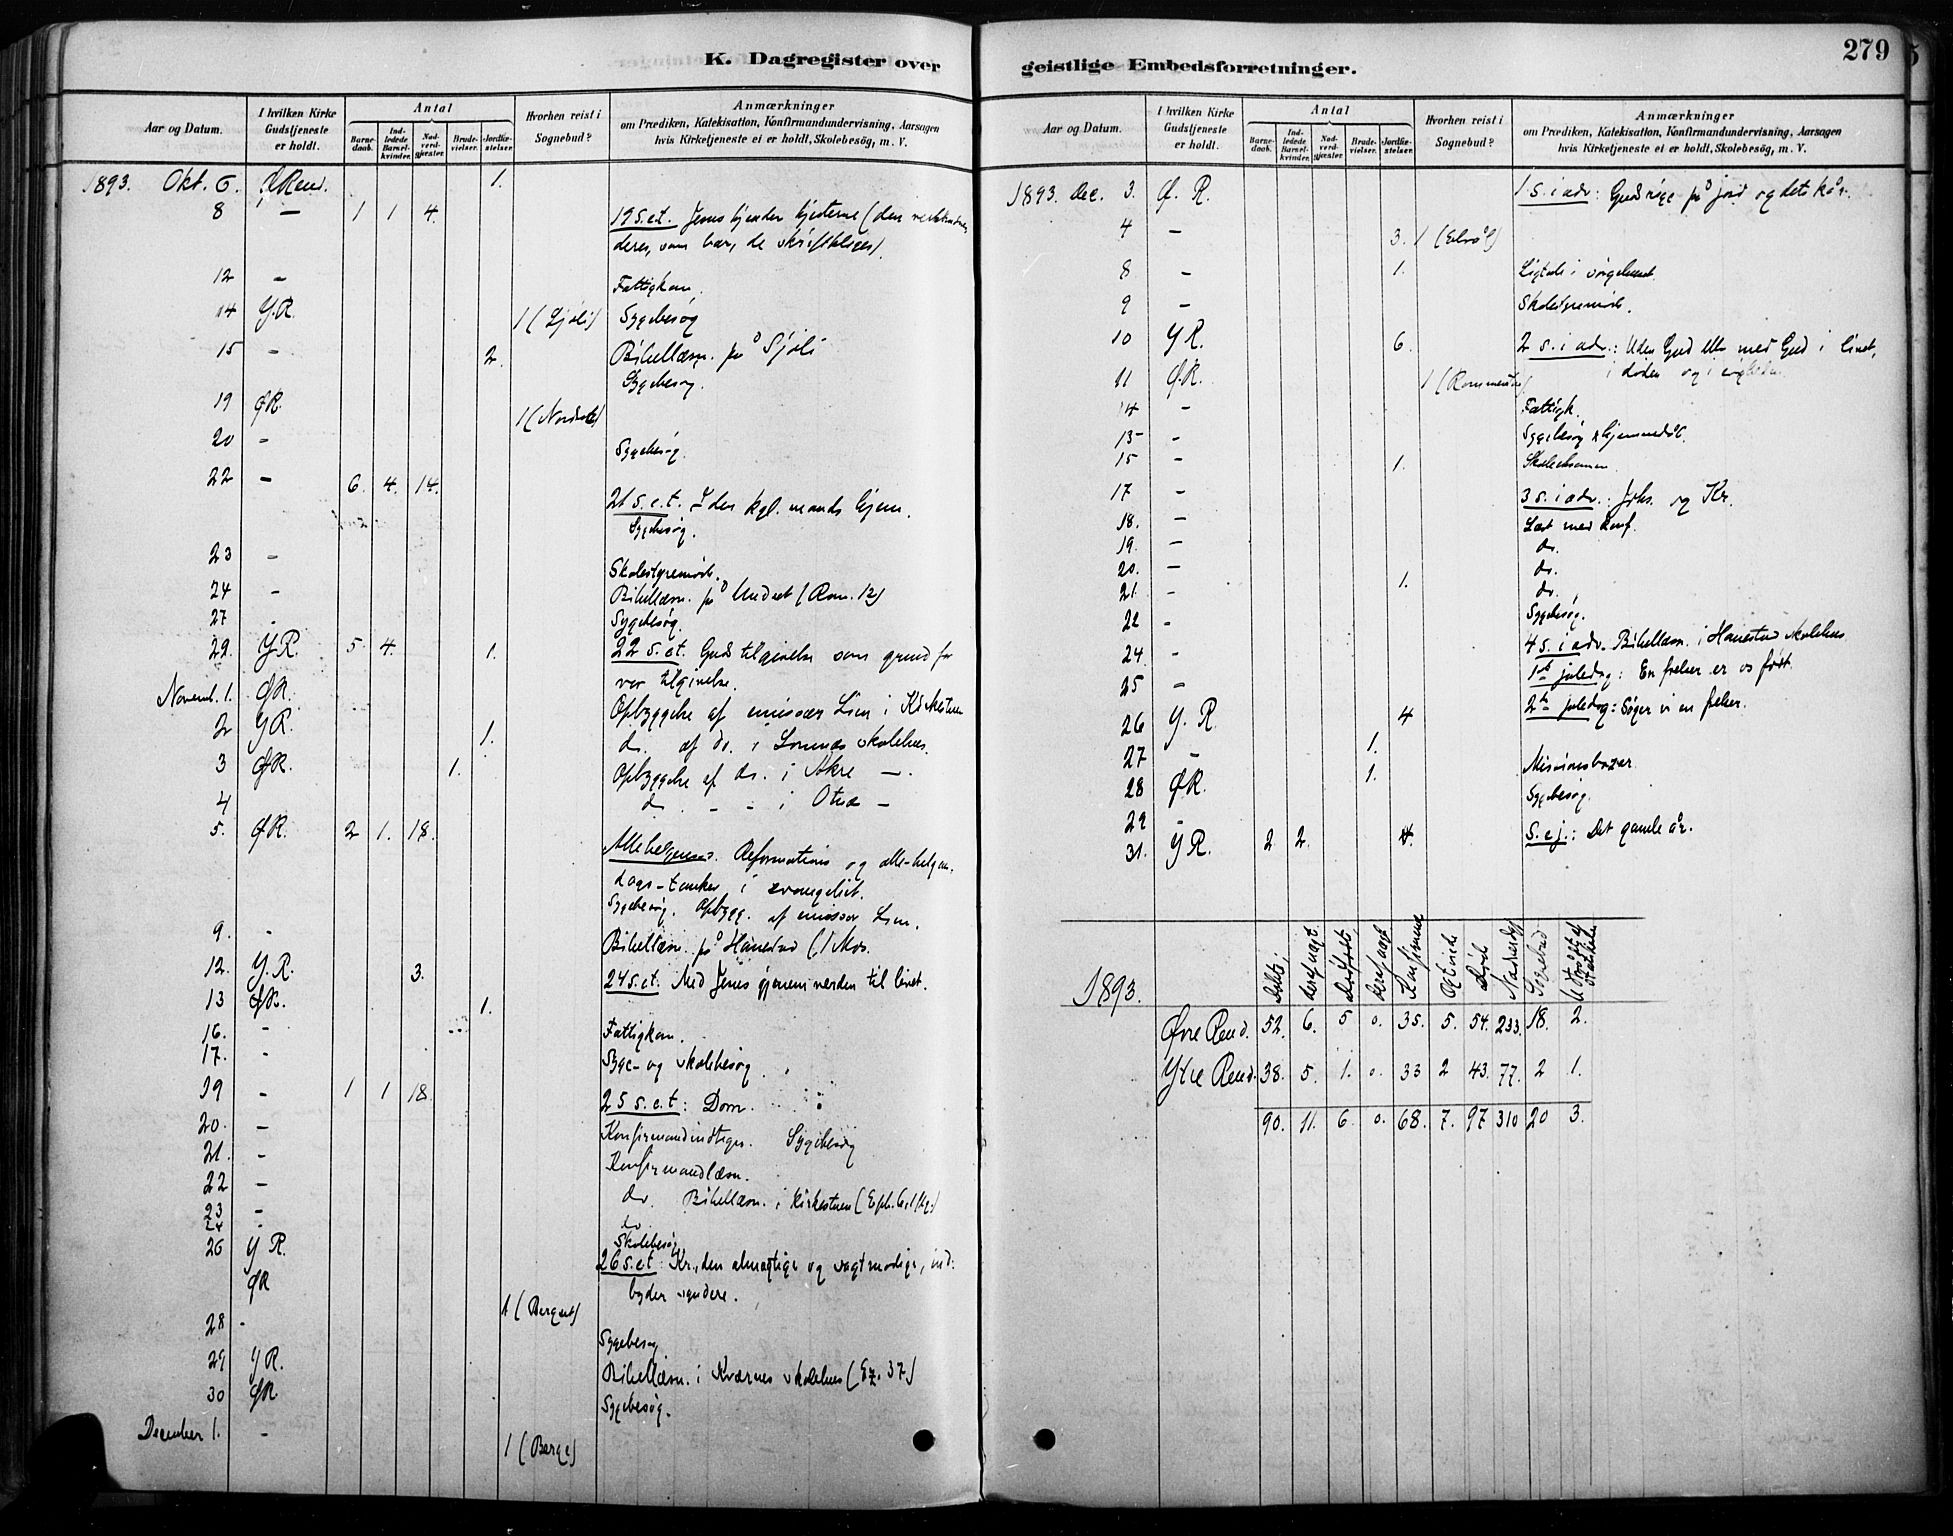 K. Dagregister over
geistlige Embedsforretninger.
279
Aar og Datum.
I hvilken Kirke Gudstjeneste er holdt.
Antal
Barnedaab.
Indledede Barselkvinder.
Nadverdgjester.
Brudevielser.
Jordfæstelser.
Hvorhen reist i Sognebud?
Anmærkninger
om Prædiken, Katekisation, Konfirmandundervisning, Aarsagen
hvis Kirketjeneste ei er holdt, Skolebesög, m. V.
1893. Okt. 6. Ø Rend. 1.
8 — 1 1 4. 19 S. e.t. Jesus kjender hjerterne (den
deres, som bær, de skriftkloges).
12 — Fattigkom.
14 Y.R. 1 (Sjøli) Sygebesøg
15 - 2. Bibellæsn. på Sjøli
Sygebesøg.
19 ØR. 1 (Nordset)
20 - Sygebesøg.
22 - 6. 4. 14. 21 S. e.t. I den kgl. mands hjem.
Sygebesøg.
23 - Skolestyremøde.
24 - Bibellæsn. på Undset (Rom. 12)
27 - Sygebesøg.
29. Y.R. 5. 4. 1. 22 S. e.t. Guds tilgivelse som grund for
vor tilgivelse.
Novemb. 1. ØR. Opbyggelse af emissær Lien i Kirkestuen
2 YR. 1. do. af do. i Lomnæs skolehus.
3 ØR. 1. Opbyggelse af do. i Akre —.
4 do - - i Otnæs -
5. ØR. 2 1. 18. Allehelgensd. Reformations og alle-helgen.
dags-tanker i evangeliet.
Sygebesøg. Opbygg. af emissær Lien.
9. - Bibellæsn. på Hanestad (1 Mos.
12. Y.R. 3. 24 S. e.t. Med Jesus gjennem verden til livet.
13 ØR. 1.
16. - Fattigkom.
17. - Syge- og skolebesøg.
19 - 1 1 18 25 S. e.t: Dom.
20. - Konfirmandindtegn. Sygebesøg
21. - Konfirmandlæsn.
22 - do. Bibellæsn. i kirkestuen (Eph.
23 - do
24 - Skolebesøg
26 Y R. 26 S. e.t: Kr., den almægtige og sagtmodige, ind-
ØR byder syndere.
28 - 1 (Bergset)
Sygebesøg
29 YR. Bibellæsn. i Kværnes skolehus (Ez. 37)
30 ØR Sygebesøg.
December 1. - 1 (Berge)
Aar og Datum.
I hvilken Kirke Gudstjeneste er holdt.
Antal
Barnedaab.
Indledede Barselkvinder.
Nadverdgjester.
Brudevielser.
Jordfæstelser.
Hvorhen reist i Sognebud?
Anmærkninger
om Prædiken, Katekisation, Konfirmandundervisning, Aarsagen
hvis Kirketjeneste ei er holdt, Skolebesög, m. V.
1893. Dec. 3. Ø. R. 1. S. i adv: Guds rige på jord og dets kår.
4 - 3. 1 (Elvål)
8 - 1. Ligtale i sørgehuset.
9 - Skolestyremøde.
10 YR. 6. 2 S. i adv.: Uden Gud eller med Gud i livet,
i døden og i
11 Ø.R. 1
14 - Fattigk.
13 - Sygebesøg &
15 - 1. Skoleeksamen.
17 - 3 S. i adv.: Johs. og Kr.
18. - Læst med konf.
19. - do.
20. - do.
21. - 1. do.
22 - Sygebesøg.
24 - 4 S. i adv. Bibellæsn. i Hanestad skolehus
25 - 1ste juledag: En frelser er os født.
26 Y. R. 4 2den juledag: Søger vi en frelser.
27 - 1.
28 ØR. 1. Missionsbazar.
29 - Sygebesøg.
31. YR. 2 2. 4. S. e j.: Det gamle år.
1893.
Døbte. deraf uægt. Dødfødte. deraf uægt Konfirmerede Døde Sognebud
Øvre Rend. 52. 6. 5 0. 35. 5. 54. 233. 18. 2.
Ytre Rend. 38. 5. 1. 0. 33 2 43. 77. 2 1.
90. 11. 6. 0. 68. 7. 97 310 20 3.